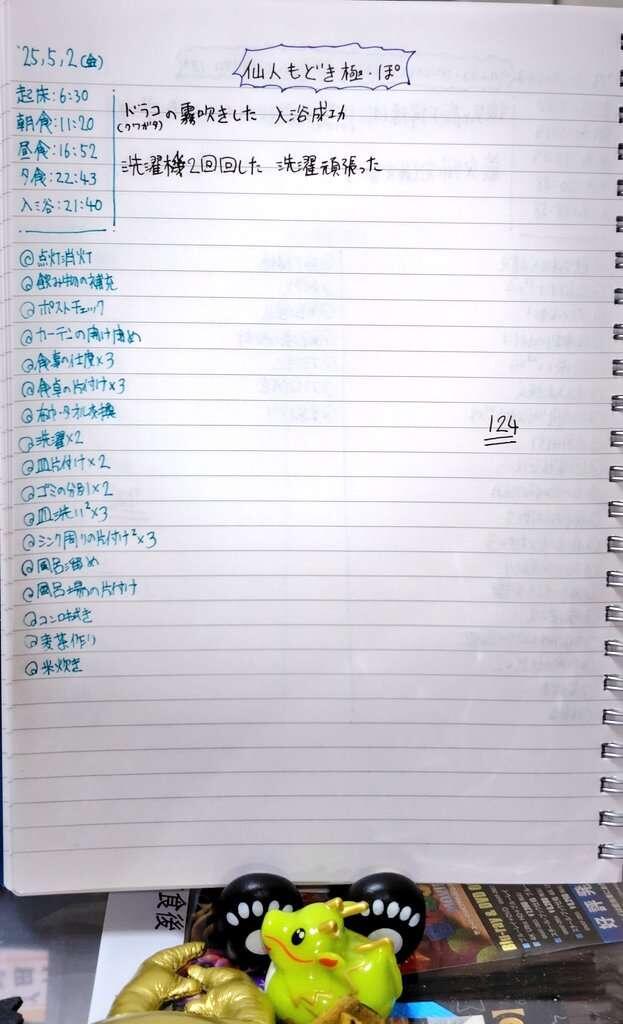 '25,5,2(金)
仙人もどき極・ぽ
起床:6:30
朝食:11:20
昼食:16:52
夕食:22:43
入浴:21:40
ドラコの霧吹きした 入浴成功
(クワガタ)
洗濯機2回回した 洗濯頑張った
@点灯消灯
@飲み物の補充
@ポストチェック
@カーテンの開け閉め
@食事の仕度×3
@食卓の片付け×3
@布巾・タオル交換
@洗濯×2
@皿片付け×2
@ゴミの分別×2
@皿洗い²×3
@シンク周りの片付け²×3
@風呂溜め
@風呂場の片付け
@コンロ拭き
@麦茶作り
@米炊き
124
食後
Blu-ray & DVD